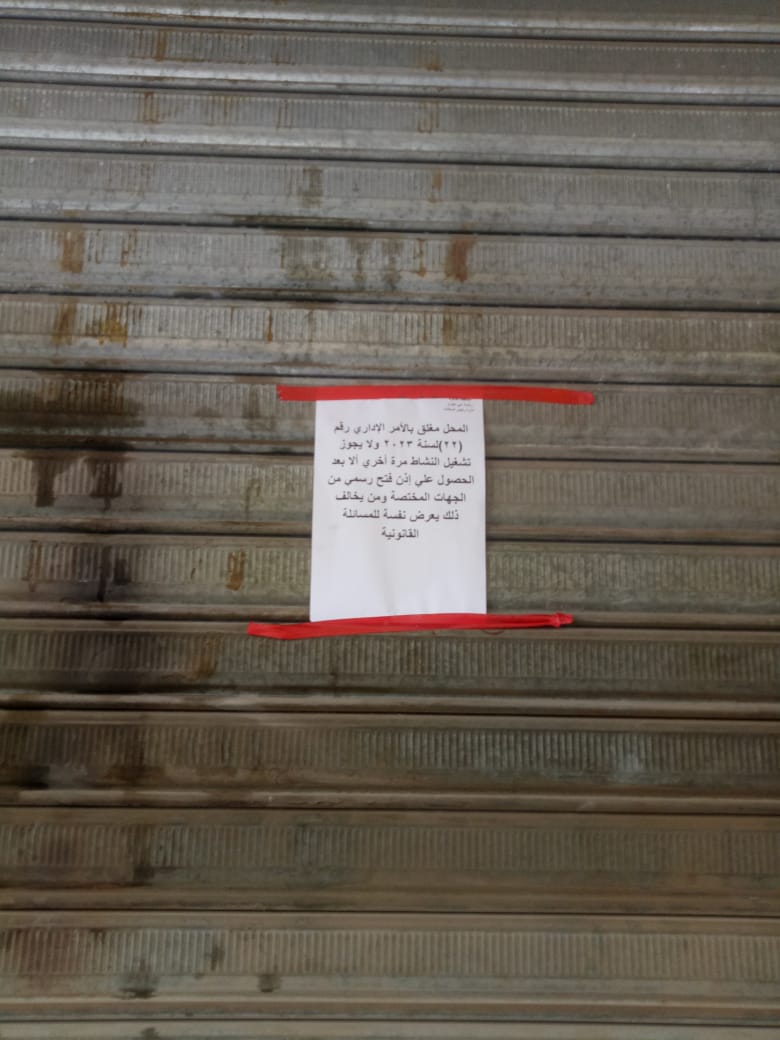 المحل مغلق بالأمر الإداري رقم
(٢٢)لسنة ٢٠٢٣ ولا يجوز
تشغيل النشاط مرة أخري ألا بعد
الحصول علي إذن فتح رسمي من
الجهات المختصة ومن يخالف
ذلك يعرض نفسة للمسائلة
القانونية